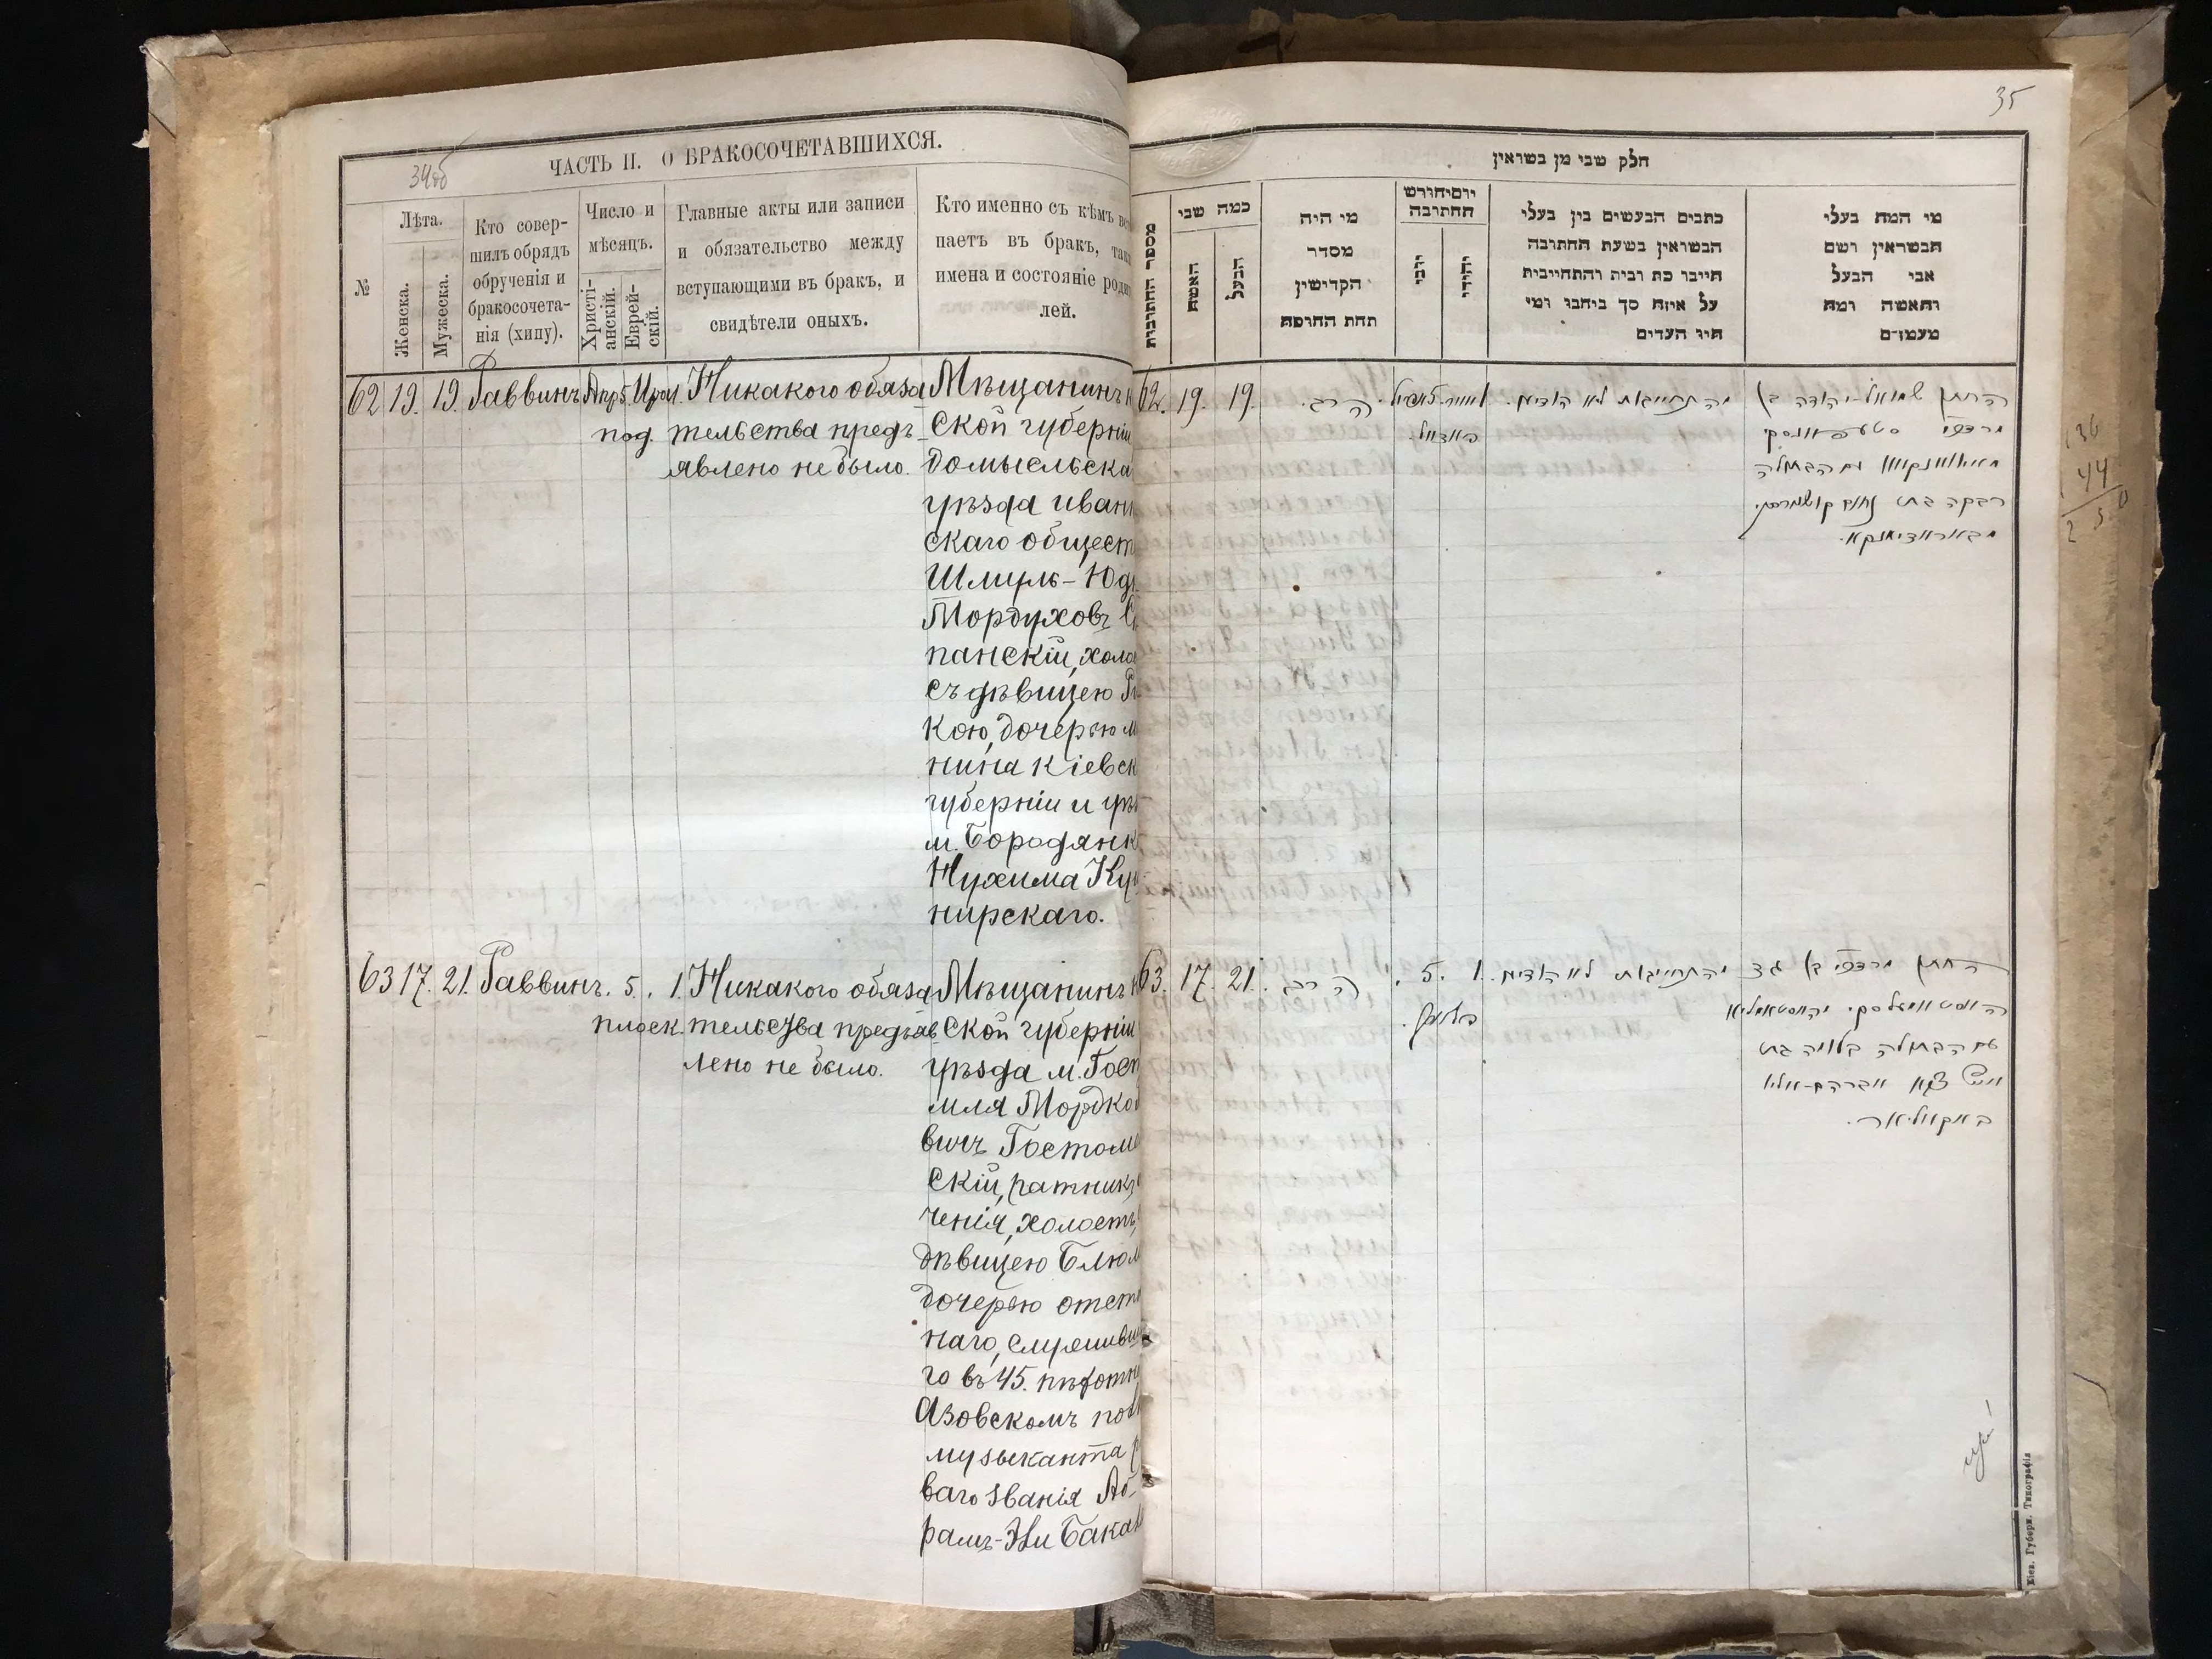 34об
ЧАСТЬ II. О БРАКОСОЧЕТАВШИХСЯ.
№
Лѣта.
Женска.
Мужеска.
Кто совер-
шилъ обрядъ
обрученія и
бракосочета-
нія (хипу).
Число и
мѣсяцъ.
Христі-
анскій.
Еврей-
скій.
Главные акты или записи
и обязательство между
вступающими въ бракъ, и
свидѣтели оныхъ.
Кто именно съ кѣмъ вс
паетъ въ бракъ, так
имена и состояніе роди
лей.
62 19. 19. Раввинъ Апр 5. Никакого обяза
тельства предъ
явлено не было.
Мѣщанинъ К
ской губерніи
домысльска
уѣзда Иванк
скаго общест
Шмуль-Юд
Мордуховъ С
панскій, холос
съ дѣвицею Ри
кою, дочерью м
нина Кіевск
губерніи и уѣз
м. Бородянк
Нухима Куш
нирскаго.
63 17. 21. Раввинъ. 5. 1. Никакого обяза
тельства предъяв
лено не было.
Мѣщанинъ К
ской губерніи
уѣзда м. Гост
мля Мордко
вичъ Гостоме
скій, ратникъ
ченія, холостъ,
дѣвицею Блюм
дочерью отст
наго, служивш
го въ 45. пѣхотн
Азовскомъ пол
музыканта р
ваго званія Аб-
рамъ-Эли Бакал
35
חלק שני מן נשואין
מספר החתונות
כמה שני
האשה
הבעל
מי היה
מסדר
הקדושין
תחת החופה
יום וחודש
החתונה
יוני
יהודי
כתבים הנעשים בין בעלי
הנשואין בשעת החתונה
חיובי כת ובית והתחייבות
על איזה סך ביחנו ומי
היו העדים
מי המה בעלי
הנשואין ושם
אבי הבעל
והאשה ומה
מעמדם
62. 19. 19. הרב.
התחייבות לא הודיעו.
החתן שמואל-יהודה בן
מרדכי סטעפאנסקי
עם הבתולה
רבקה בת נחום קושנירסקי
מבאראדיאנקא.
63. 17. 21. הרב. 5. 1.
התחייבות לא הודיעו
החתן מרדכי בן
עם הבתולה בלומה בת
איש צבא אברהם-אליא
באקאליאר.
36
44
Кіев. Губерн. Типографія